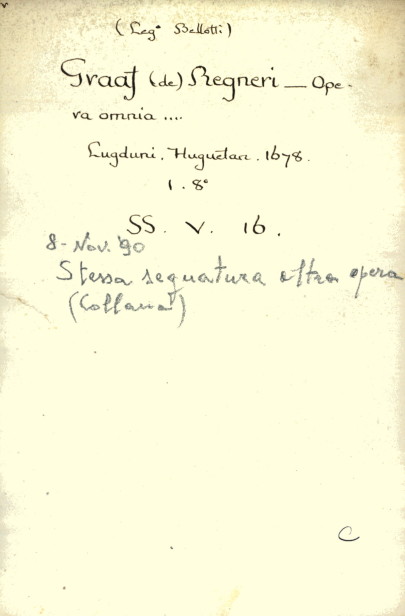 (Leg° Bellotti)
Graaf (de) Regneri — Ope-
ra omnia ....
Lugduni. Huguetan. 1678.
1. 8°
SS. V. 16.
8-Nov. '90
Stessa segnatura altra opera
C